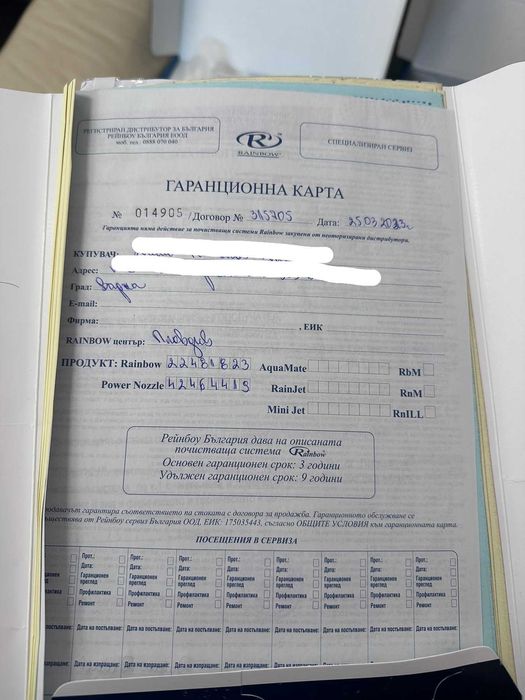 РЕГИСТРИРАН ДИСТРИБУТОР ЗА БЪЛГАРИЯ
РЕЙНБОУ БЪЛГАРИЯ ЕООД
моб. тел.: 0888 070 040
R
RAINBOW
СПЕЦИАЛИЗИРАН СЕРВИЗ
ГАРАНЦИОННА КАРТА
№ 014905 /Договор № 315705 Дата: 25.03.2023г.
Гаранцията няма действие за почистващи системи Rainbow закупени от неоторизирани дистрибутори.
КУПУВАЧ:
Адрес:
Град: Варна
E-mail:
Фирма: , ЕИК
RAINBOW център: Пловдив
ПРОДУКТ: Rainbow 22481823 AquaMate RbM
Power Nozzle 42464419 RainJet RnM
Mini Jet RnILL
Рейнбоу България дава на описаната
почистваща система Rainbow
Основен гаранционен срок: 3 години
Удължен гаранционен срок: 9 години
гарантира съответствието на стоката с договора за продажба. Гаранционното обслужване се
от Рейнбоу сервиз България ООД, ЕИК: 175035443, съгласно ОБЩИТЕ УСЛОВИЯ към гаранционната карта.
ПОСЕЩЕНИЯ В СЕРВИЗА
Прот.: Прот.: Прот.: Прот.: Прот.: Прот.: Прот.: Прот.:
Дата: Дата: Дата: Дата: Дата: Дата: Дата: Дата:
Гаранционен Гаранционен Гаранционен Гаранционен Гаранционен Гаранционен Гаранционен Гаранционен
преглед преглед преглед преглед преглед преглед преглед преглед
Профилактика Профилактика Профилактика Профилактика Профилактика Профилактика Профилактика Профилактика
Ремонт Ремонт Ремонт Ремонт Ремонт Ремонт Ремонт Ремонт
Дата на постъпване: Дата на постъпване: Дата на постъпване: Дата на постъпване: Дата на постъпване: Дата на постъпване: Дата на постъпване:
Дата на изпращане: Дата на изпращане: Дата на изпращане: Дата на изпращане: Дата на изпращане: Дата на изпращане: Дата на изпращане: